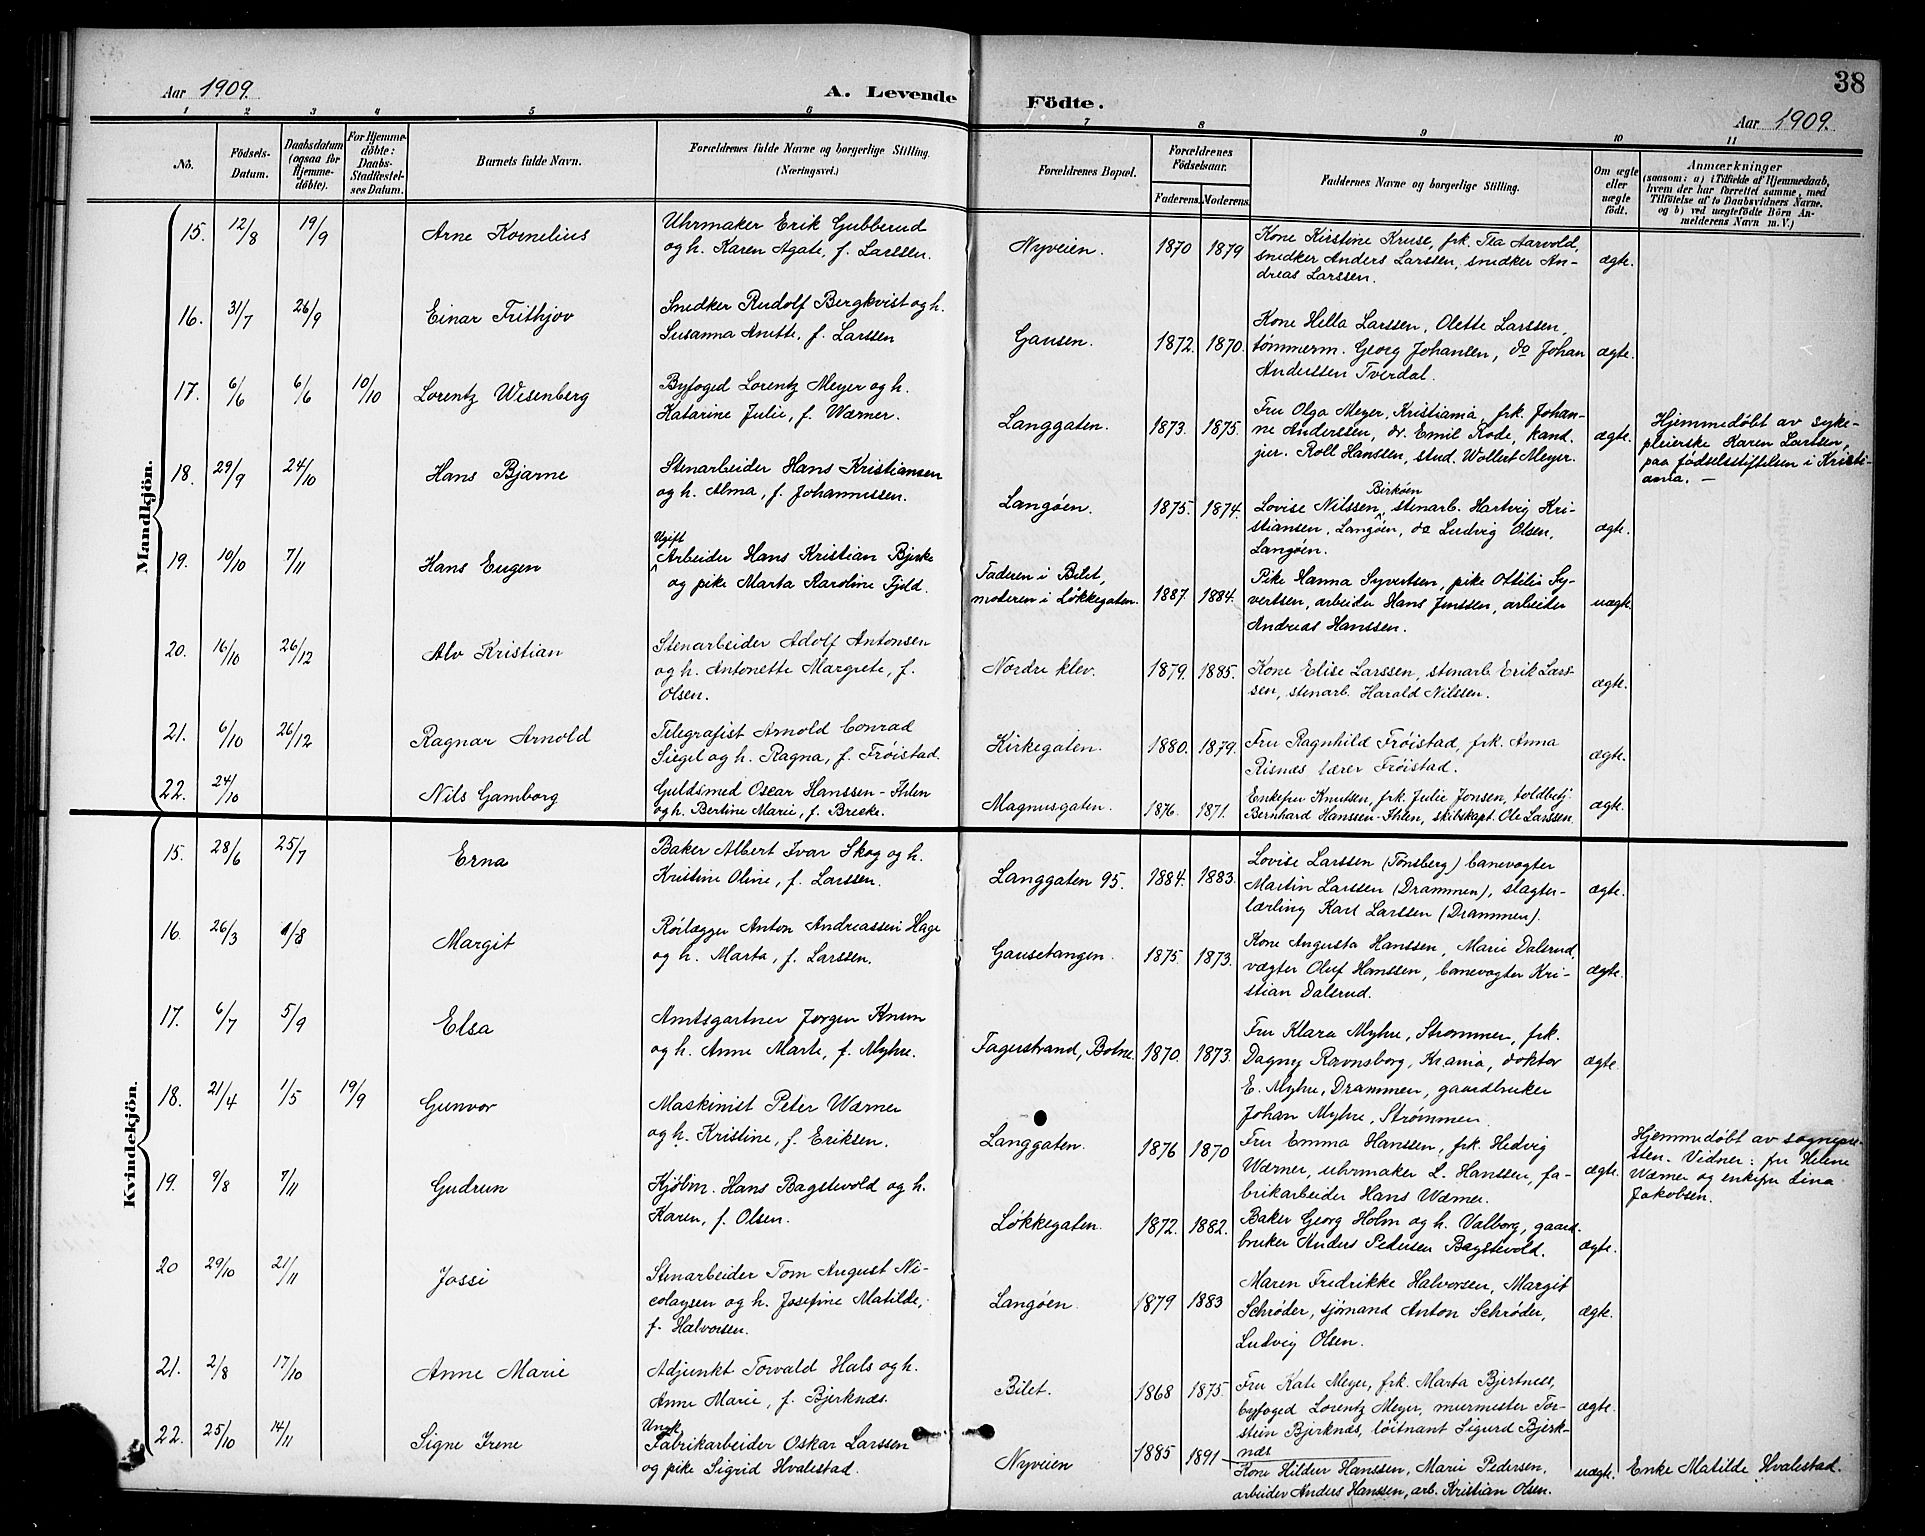 38
Aar 1909.
A. Levende
Födte.
Aar 1909.
1 2 3 4 5 6 7 8 9 10 11
Nö.
Födsels-
Datum.
Daabsdatum
(ogsaa for
Hjemme-
döbte).
For Hjemme-
döbte:
Daabs-
Stadfæstel-
ses Datum.
Barnets fulde Navn.
Forældrenes fulde Navne og borgerlige Stilling.
(Næringsvei.)
Forældrenes Bopæl.
Forældrenes
Födselsaar.
Faderens. Moderens.
Faddernes Navne og borgerlige Stilling.
Om ægte
eller
uægte
födt.
Anmærkninger
(saasom: a) i Tilfælde af Hjemmedaab,
hvem der har forrettet samme, med
Tilföielse af to Daabsvidners Navne.
og b) ved uægtefödte Börn An-
melderens Navn m. V.)
Mandkjön.
15. 12/8 19/9 Arne Kornelius
Uhrmaker Erik Gubberud
og h. Karen Agate, f. Larssen.
Nyveien. 1870 1879
Kone Kirstine Kruse, frk. Tea Aarvold,
snedker Anders Larssen, snedker An-
dreas Larssen.
ægte.
16. 31/7 26/9 Einar Frithjov
Snedker Rudolf Bergkvist og h.
Susanna Anette, f. Larssen
Gausen. 1872. 1870.
Kone Hella Larssen, Olette Larssen,
tømmerm. Georg Johansen, do Johan
Anderssen Tverdal.
ægte.
17. 6/6 6/6 10/10 Lorentz Wesenberg
Byfoged Lorentz Meyer og h.
Katarine Julie, f. Wærner.
Langgaten. 1873. 1875.
Fru Olga Meyer, Kristiania, frk. Johan-
ne Anderssen, dr. Emil Kode, kand.
jur. Rolf Hanssen, stud. Wollert Meyer.
ægte.
Hjemmedøbt av syke-
pleierske Karen Larssen,
paa fødselsstiftelsen i Kristi-
ania. —
18. 29/9 24/10 Hans Bjarne
Stenarbeider Hans Kristiansen
og h. Alma, f. Johannissen.
Langøen. 1875. 1874.
Birkøen
Lovise Nilssen, stenarb. Hartvig Kri-
stiansen, Langøen, do Ludvig Olsen,
Langøen.
ægte.
19. 10/10 7/11 Hans Eugen
Ugift
Arbeider Hans Kristian Bjerke
og pike Marta Karoline Fjeld.
Faderen i Bilet,
moderen i Løkkegaten. 1887. 1884.
Pike Hanna Syvertsen, pike Ottilia Sy-
vertsen, arbeider Hans Jenssen, arbeider
Andreas Hanssen.
uægte.
20. 16/10 26/12 Alv Kristian
Stenarbeider Adolf Antonsen
og h. Antonette Margrete, f.
Olsen.
Nordre klev. 1879. 1885.
Kone Elise Larssen, stenarb. Erik Lars-
sen, stenarb. Harald Nilssen.
ægte.
21. 6/10 26/12 Ragnar Arnold
Telegrafist Arnold Conrad
Siegel og h. Ragna, f. Frøistad.
Kirkegaten. 1880. 1879.
Fru Ragnhild Frøistad, frk. Anna
Risnæs lærer Frøistad.
ægte.
22. 24/10 Nils Gamborg
Guldsmed Oscar Hanssen-Ihlen
og h. Bertine Marie, f. Brekke.
Magnusgaten. 1876. 1871.
Enkefru Knutsen, frk. Julie Jonsen, toldbetj.
Bernhard Hanssen-Ihlen, skibskapt. Ole Larssen.
ægte.
Kvindekjön.
15. 28/6 25/7 Erna
Baker Albert Ivar Skog og h.
Kristine Oline, f. Larssen.
Langgaten 95. 1884. 1883.
Lovise Larssen (Tønsberg) banevogter
Martin Larssen (Drammen), slagter-
lærling Karl Larssen (Drammen).
ægte.
16. 26/3 1/8 Margit
Rørlægger Anton Andreassen Hage
og h. Marta, f. Larssen.
Gausetangen. 1875. 1873.
Kone Augusta Hanssen, Marie Dalsrud,
vægter Oluf Hanssen, banevogter Kri-
stian Dalsrud.
ægte.
17. 6/7 5/9 Elsa
Amtsgartner Jørgen Knem
og h. Anne Marte, f. Myhre.
Fagerstrand, Botne. 1870. 1873.
Fru Klara Myhre, Strømmen, frk.
Dagny Ravnsborg, Krania, doktor
E. Myhre, Drammen, gaardbruker
Johan Myhre, Strømmen.
ægte.
18. 21/4 1/5 19/9 Gunvor
Maskinist Peter Wærner
og h. Kristine, f. Eriksen.
Langgaten. 1876 1870
Fru Emma Hanssen, frk. Hedvig
Wærner, uhrmaker L. Hanssen, fa-
brikarbeider Hans Wærner.
ægte.
Hjemmedøbt av sognepre-
sten. Vidner: fru Helene
Wærner og enkefru Lina
Jakobsen.
19. 9/8 7/11 Gudrun
Kjøbm. Hans Bagstevold og h.
Karen, f. Olsen.
Løkkegaten. 1872. 1882.
Baker Georg Holm og h. Valborg, gaard-
bruker Anders Pedersen Bagstevold.
ægte.
20 29/10 21/11 Jossi
Stenarbeider Tom August Ni-
colaysen og h. Josefine Matilde,
f. Halvorsen.
Langøen. 1879 1883
Maren Fredrikke Halvorsen, Margit
Schrøder, sjømand Anton Schrøder,
Ludvig Olsen.
ægte.
21. 2/8 17/10 Anne Marie
Adjunkt Torvald Hals og h.
Anne Marie, f. Bjerknæs.
Bilet. 1868 1875.
Fru Kate Meyer, frk. Marta Bjertness,
byfoged Lorentz Meyer, murmester Tor-
stein Bjerknæs, løitnant Sigurd Bjerk-
næs
ægte.
22. 25/10 14/11 Signe Irene
Ungk.
Fabrikarbeider Oskar Larssen
og pike Sigrid Hvalestad.
Nyveien 1885 1891
Kone Hilder Hanssen, Marie Pedersen,
arbeider Anders Hanssen, arb. Kristian Olsen.
uægte.
Enke Matilde Hvalestad.